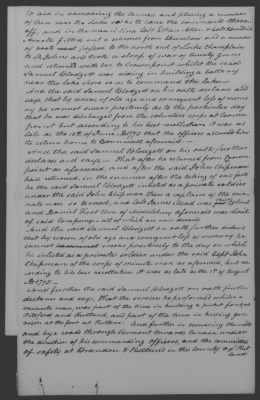 to aid in dismantling the cannon and placing a number
of them near the Lake so as to have the command there
off. and in the mean time Col. Ethan Allen & Col. Benedict
Arnold fitted out a schooner from Skeensboro and a number
of boats went passed to the north end of Lake Champlain
to St. Johns and took a sloop of four or twenty guns
and returned with her to Crownpoint whilst the said
Samuel Blodgett was aiding in building a battery
near the lake shore so as to command the Lake
And the said Samuel Blodgett on his oath declares and
says, that by reason of old age and consequent loss of memo
ry he cannot swear positively as to the particular day
that he was discharged from the volunteer corps at Crown
point but according to his best recollection it was as
late as the 10th of June AD 1775 that the officers allowed him
to return home to Cornwall aforesaid —
And the said Samuel Blodgett on his oath further
declares and says — That after he returned from Crown
point as aforesaid, and after the said John Chipman
had returned, in the summer after the taking of said forts
he the said Samuel Blodgett enlisted as a private soldier
under the said John Chipman then a captain of the min
ute men so termed, and Col. James Mead was
and Daniel Foot then of Middlebury aforesaid was Lieut
of said Company — all of which in
And the said Samuel Blodgett on oath further declares
that by reason of old age and consequent loss of memory he
cannot swear positively to the day on which
he enlisted as a private soldier under the said Capt. John
Chipman of the corps of minute men as aforesaid, but ac
cording to his best recollection it was as late as the 1st of August
AD 1775 —
And further the said Samuel Blodgett on oath further
declares and says, that the service he performed whilst a
minute man, was part of the time in building a picket fort at
Pittsford and Rutland, and part of the time in keeping gar
rison at the fort at Rutland. And further in scouring the woods
and bye roads through Vermont towards Canada, under
the direction of his commanding officers, and the committee
of safety at Brandon & Pittsford in the County of Rut
land